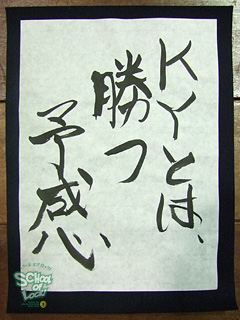 KYとは、
勝つ
予感
SCHOOL
OF
LOCK!